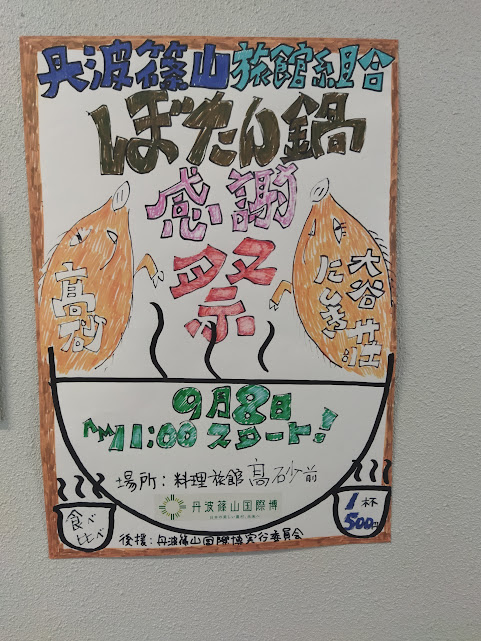 丹波篠山旅館組合
ぼたん鍋
感謝
祭
高砂
にしき
大谷荘
9月8日
AM11:00 スタート!
場所:料理旅館高砂前
丹波篠山国際博
食べ
比べ
1杯
500円
後援:丹波篠山国際博実行委員会